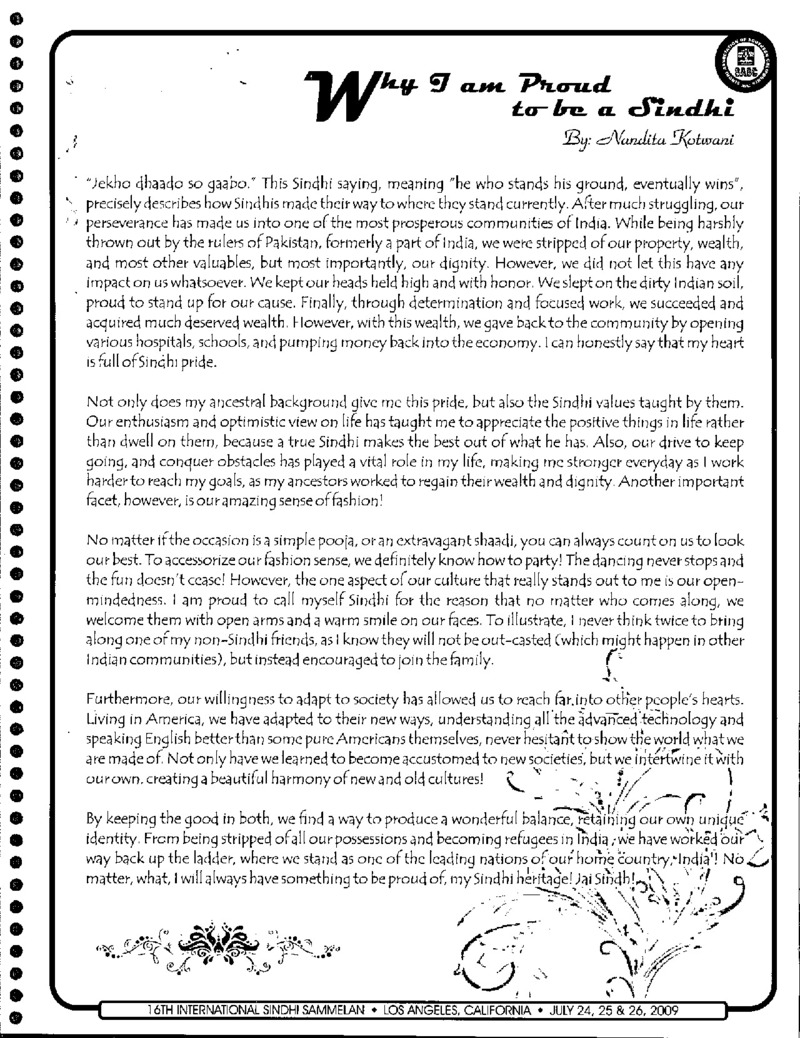 Why I am Proud
to be a Sindhi
By: Nandita Kotwani
"Jekho dhaado so gaabo." This Sindhi saying, meaning "he who stands his ground, eventually wins",
precisely describes how Sindhis made their way to where they stand currently. After much struggling, our
perseverance has made us into one of the most prosperous communities of India. While being harshly
thrown out by the rulers of Pakistan, formerly a part of India, we were stripped of our property, wealth,
and most other valuables, but most importantly, our dignity. However, we did not let this have any
impact on us whatsoever. We kept our heads held high and with honor. We slept on the dirty Indian soil,
proud to stand up for our cause. Finally, through determination and focused work, we succeeded and
acquired much deserved wealth. However, with this wealth, we gave back to the community by opening
various hospitals, schools, and pumping money back into the economy. I can honestly say that my heart
is full of Sindhi pride.
Not only does my ancestral background give me this pride, but also the Sindhi values taught by them.
Our enthusiasm and optimistic view on life has taught me to appreciate the positive things in life rather
than dwell on them, because a true Sindhi makes the best out of what he has. Also, our drive to keep
going, and conquer obstacles has played a vital role in my life, making me stronger everyday as I work
harder to reach my goals, as my ancestors worked to regain their wealth and dignity. Another important
facet, however, is our amazing sense of fashion!
No matter if the occasion is a simple pooja, or an extravagant shaadi, you can always count on us to look
our best. To accessorize our fashion sense, we definitely know how to party! The dancing never stops and
the fun doesn't cease! However, the one aspect of our culture that really stands out to me is our open-
mindedness. I am proud to call myself Sindhi for the reason that no matter who comes along, we
welcome them with open arms and a warm smile on our faces. To illustrate, I never think twice to bring
along one of my non-Sindhi friends, as I know they will not be out-casted (which might happen in other
Indian communities), but instead encouraged to join the family.
Furthermore, our willingness to adapt to society has allowed us to reach far into other people's hearts.
Living in America, we have adapted to their new ways, understanding all the advanced technology and
speaking English better than some pure Americans themselves, never hesitant to show the world what we
are made of. Not only have we learned to become accustomed to new societies, but we intertwine it with
our own, creating a beautiful harmony of new and old cultures!
By keeping the good in both, we find a way to produce a wonderful balance, retaining our own unique
identity. From being stripped of all our possessions and becoming refugees in India, we have worked our
way back up the ladder, where we stand as one of the leading nations of our home country, India! No
matter, what, I will always have something to be proud of, my Sindhi heritage! Jai Sindh!
16TH INTERNATIONAL SINDHI SAMMELAN • LOS ANGELES, CALIFORNIA • JULY 24, 25 & 26, 2009